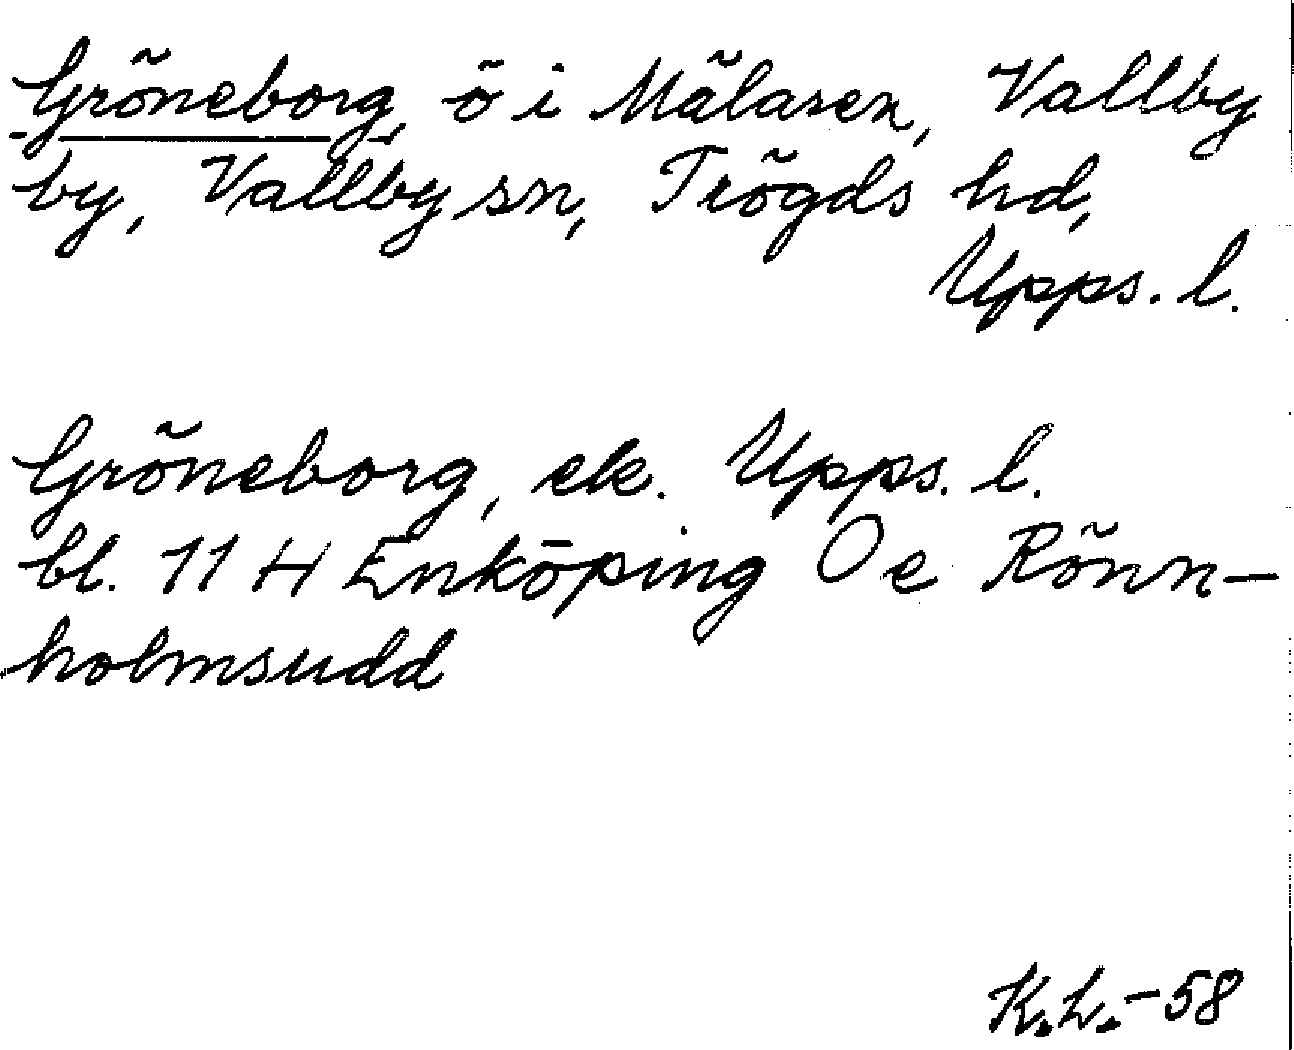 Gröneborg, ö i Mälaren, Vallby
by, Vallby sn, Trögds hd,
Upps. l.
Gröneborg, ek. Upps. l.
bl. 11 H Enköping Oe Rönn-
holmsudd
K.L.-58